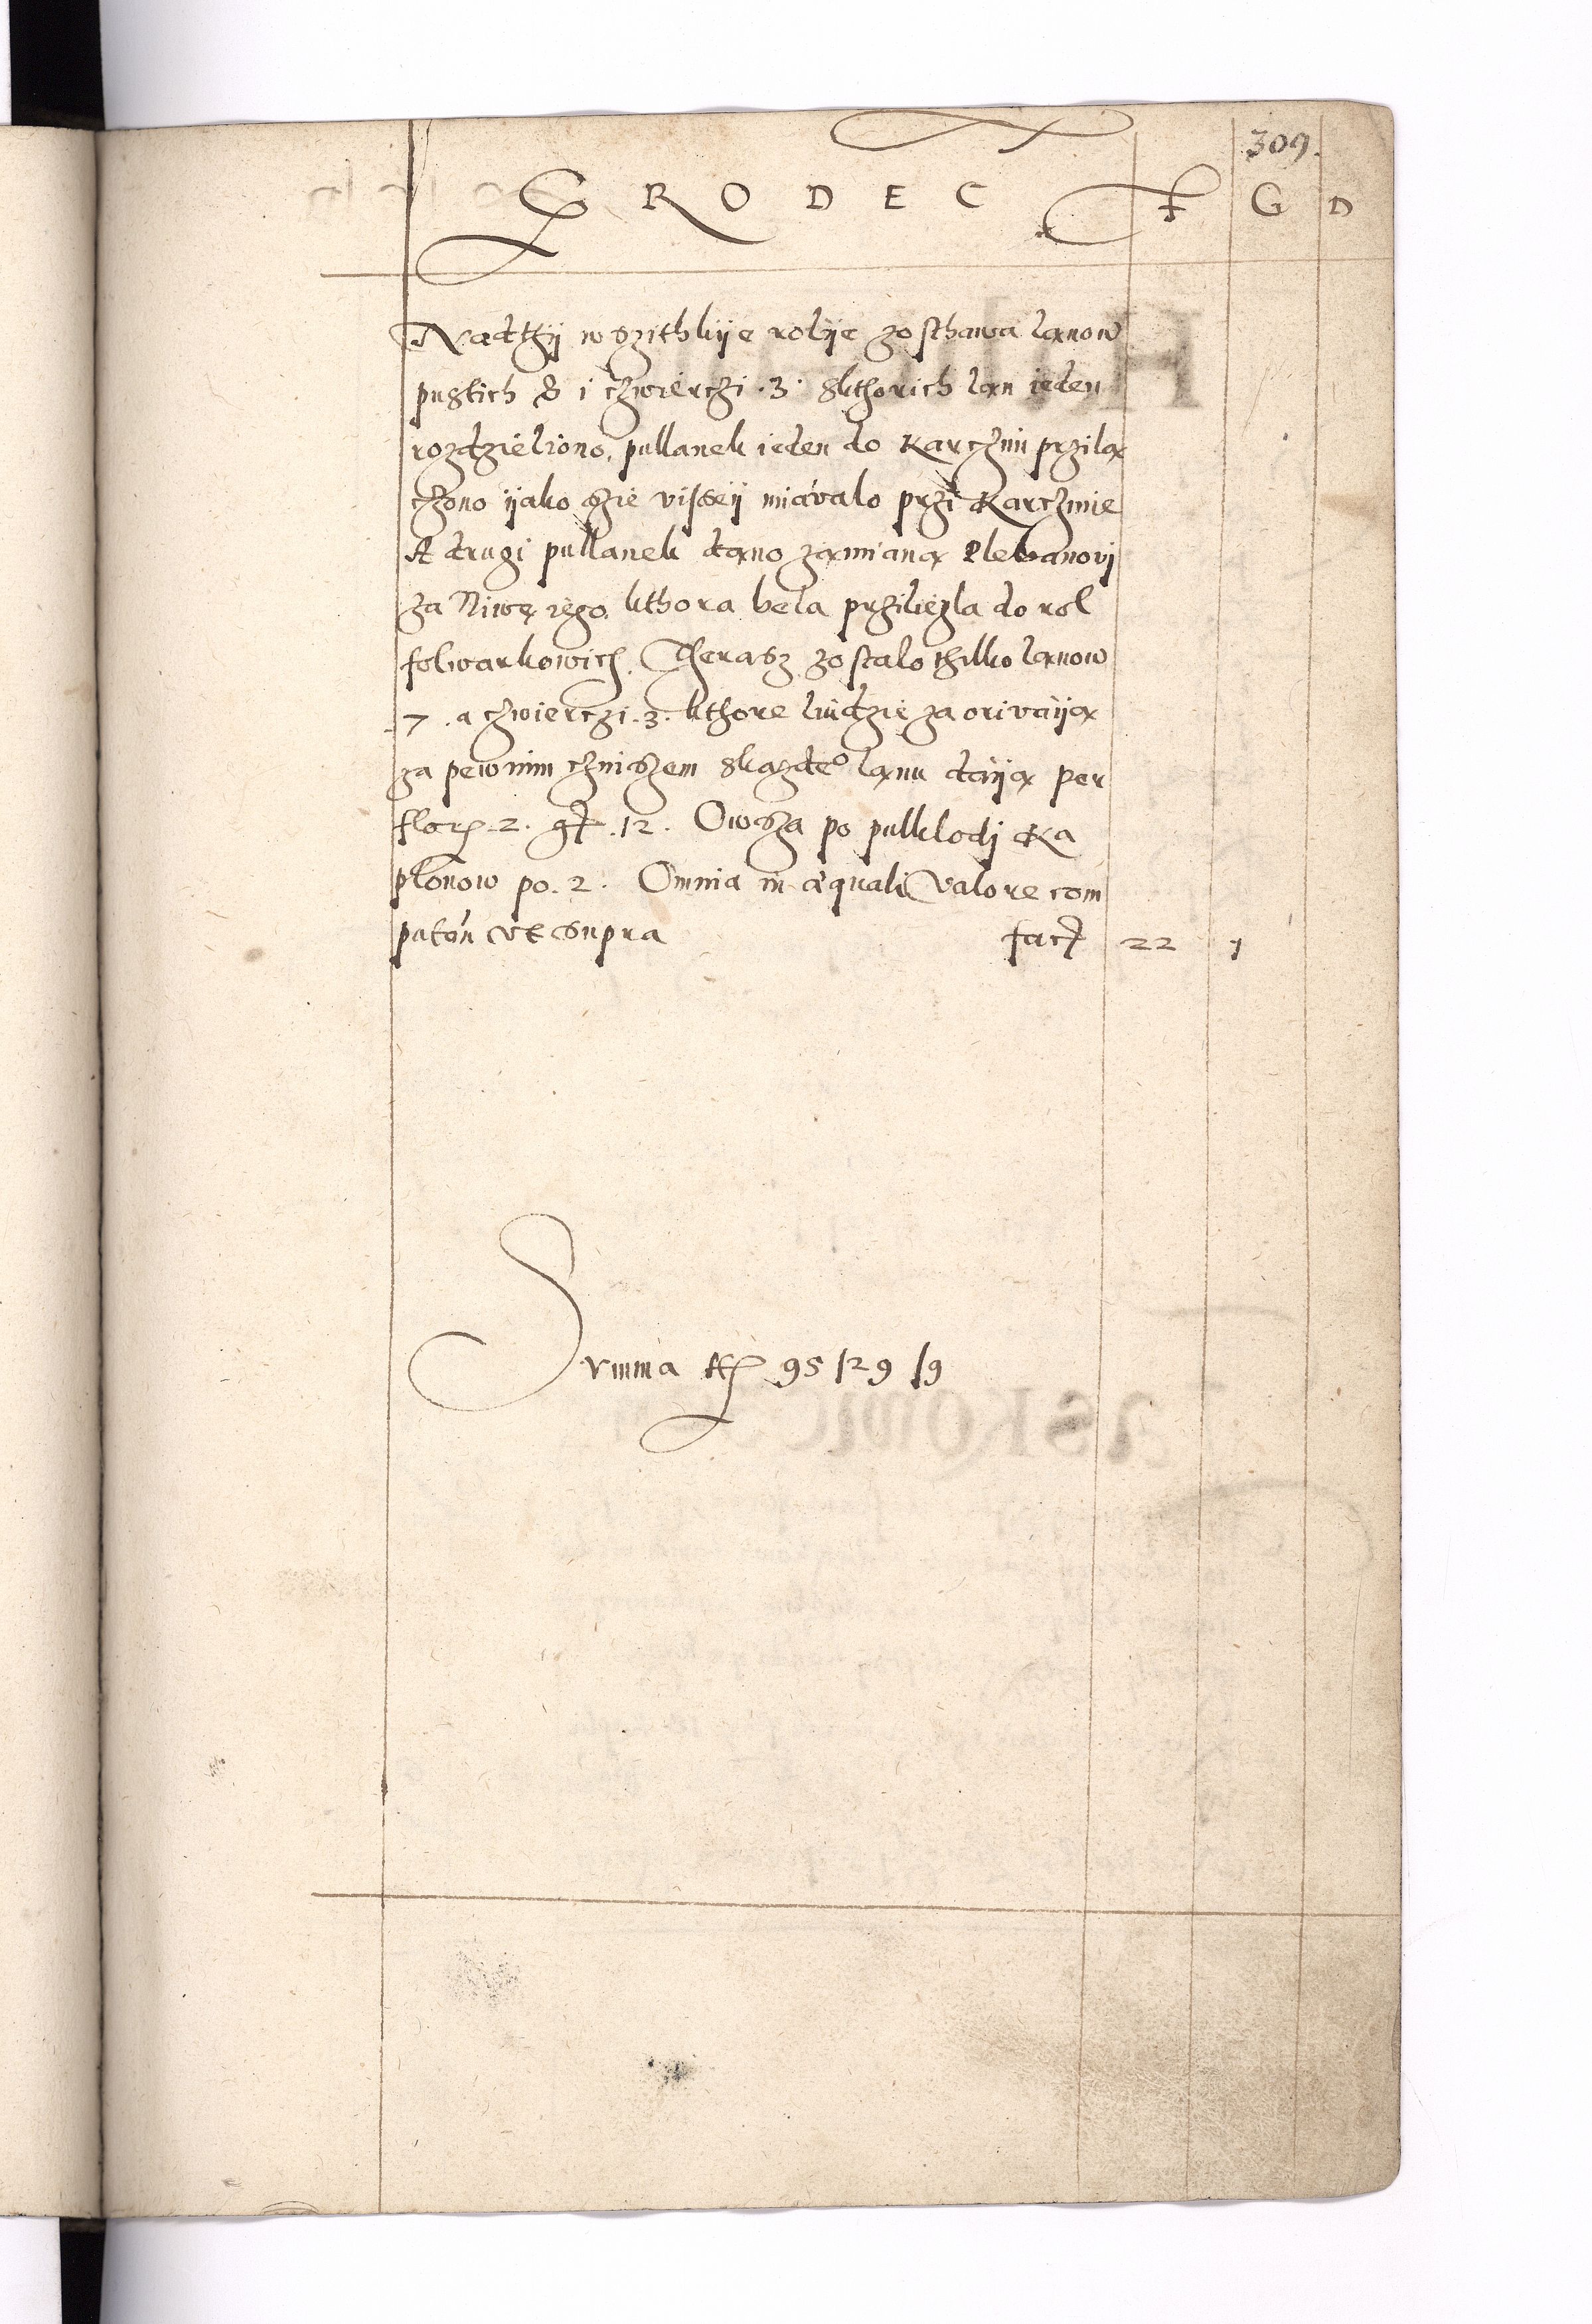 309.
GRODEC F G D
Nadthij wszithkije rolije zosthawa lanow
pustich 8 i czwierczi .3. skthorich lan ieden
rozdzieliono, pullanek ieden do Karczmi przila
czono ijako szie visseij miawalo przi Karczmie
A drugi pullanek dano zamiana Plebanovi
za Niwę iego, kthora bela przilegla do rol
folwarkowich. Therasz zostalo thilko lanow
7 . a czwierczi .3. kthore liudzie za orivaija
za pewnim cziniszem skazdeo lanu daija per
flor. 2. gr .12. Owsza po pulklodj Ka
plonow po .2. Omnia in aequali valore com
putan vt supra fact 22 1
Summa 95 / 29 / 9